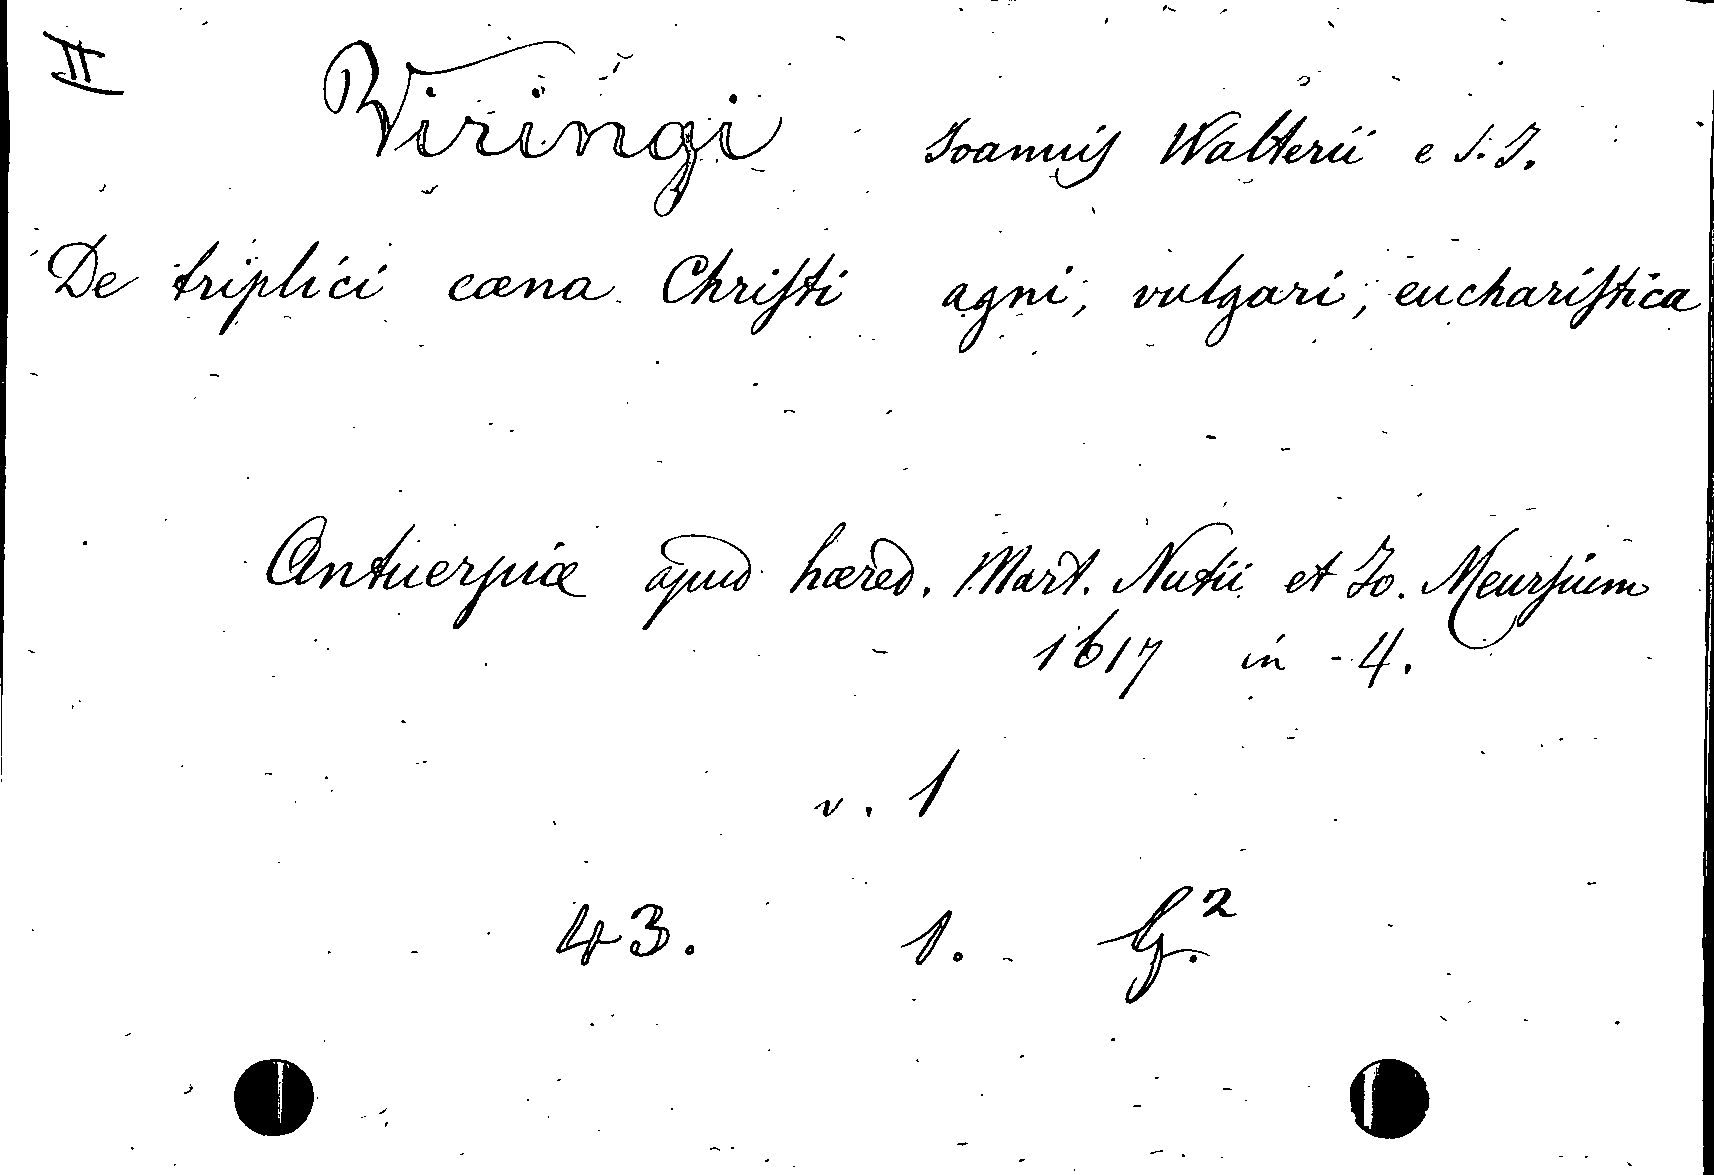 II
Viringi Joannis Walterii e S. J.
De triplici cœna Christi agni, vulgari, eucharistica
Antuerpiæ apud hæred. Mart. Nutii et Jo. Meursium
1617 in-4.
v. 1
43. 1. G.²